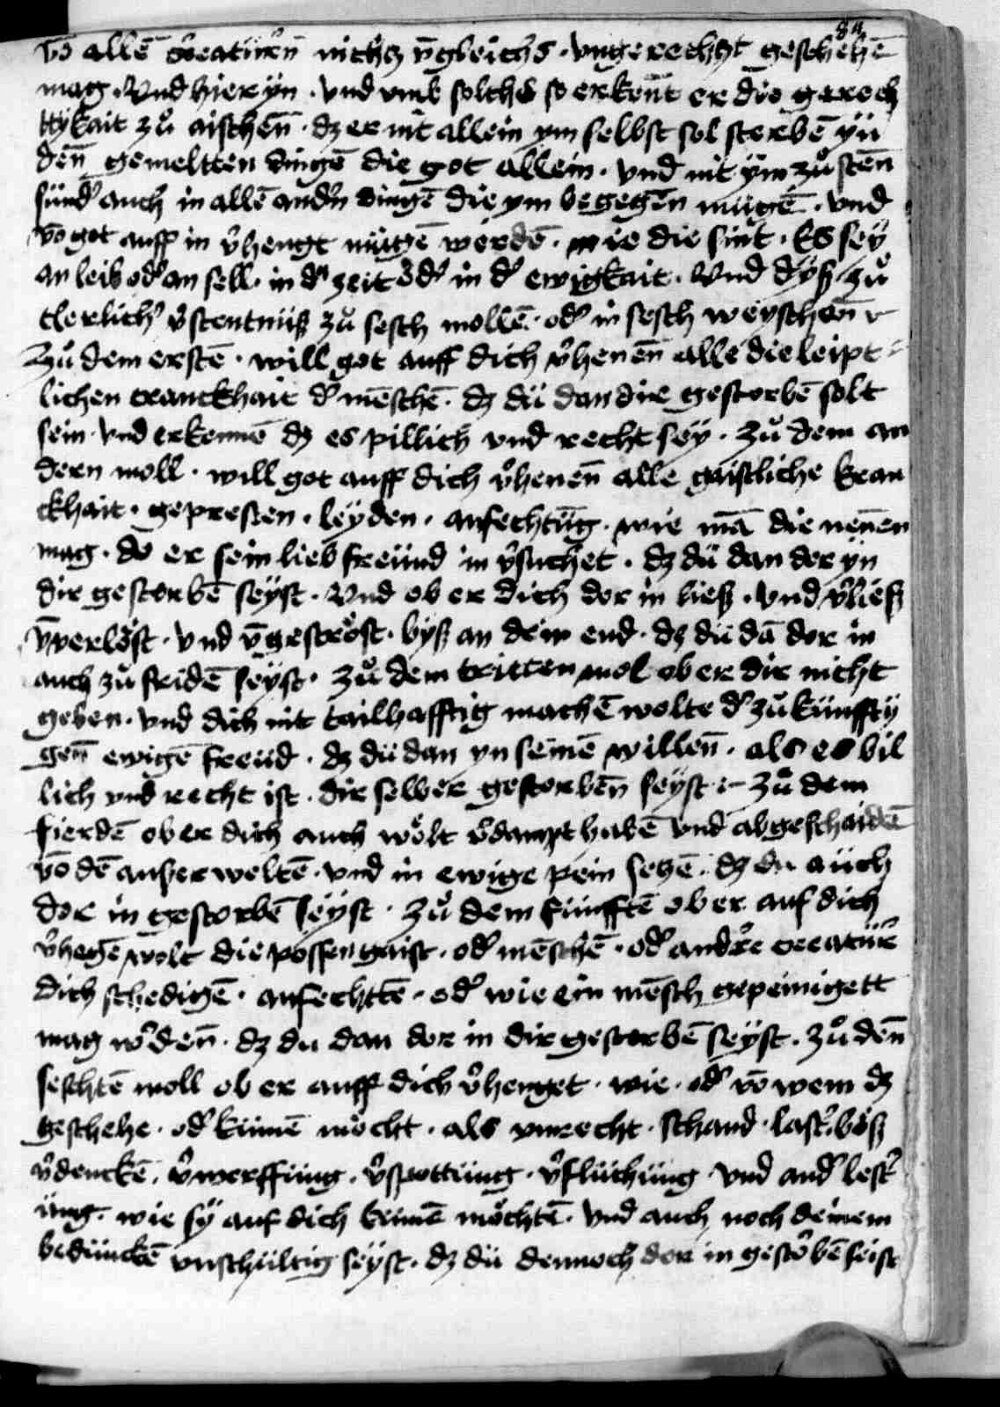 vō allē creatürn̄ nichtz v̄gleichs · vngerechht geschehē
mag · Vnd hier yn · vnd vmb solchs so erkent er die gerech
ttykait zů aischen̄ · dz er nit allein ym selbst sol sterbē yn
den̄ gemeltten dingē die got allein · vnd nit ym zů sten
sund' auch in allē andn̄ dingē die ym begegen̄ mügē · vnd
vō got auff in v'hengt mügē werdē · wie die sint · Es sey
an leib od' an sell · in d' zeit od' in d' ewigkait · Vnd dyß zů
clerlich' v'stentnüß zů sesch mollē · od' in sesch weyschen̄
Zů dem erstē · will got auff dich v'henen̄ alle die leipt
lichen cranckhait d' mēschē · dz dü dan dir gestorbē solt
sein · vnd erkennē dz es pillich vnd recht sey · zů dem an
dern moll · will got auff dich v'henen̄ alle gaistliche kran
ckhait · gepresten · leyden · anfechtūg · wie mā die nenen
mag · do er sein lieb freünd in v'suchet · dz dü dan dor yn
dir gestorbē seyst · Vnd ob er dich dor in ließ · vnd v'ließ
v̄verlöst · vnd v̄getröst · byß an dein end · dz dü dā dor in
auch zů fridē seyst · zů dem tritten mol ob er dir nicht
geben · vnd dich nit tailhafftig machē wolte d' zůkünffty
gen̄ ewigē freüd · dz dü dan yn seinē willen̄ · als es bil
lich vnd recht ist · dir selber gestorben̄ seyst · zů dem
fierdē ob er dich auch wölt v'dampt habē vnd abgeschaidē
vō dē auserweltē · vnd in ewige pein sezē · dz du auch
dor in gestorbē seyst · zů dem fünfftē ob er auf dich
v'hegē wolt die possen gaist · od' mēschē · od' andre creatür
dich schedigē · anfechttē · od' wie ein mēsch gepeinigett
mag w'den̄ · dz du dan dor in dir gestorbē seyst · zů den̄
seschtē moll ob er auff dich v'henget · wie · od' vō wem dz
geschehe · od' kümē möcht · als vnrecht · schand · last' · böß
v'denckē · v'werffüng · v'spottüng · v'flüchüng · vnd and' lest'
üng · wie sy auf dich kümē möchtē · vnd auch noch deinem
bedünckē vnschültig seyst · dz dü dennoch dor in gestorbē seist